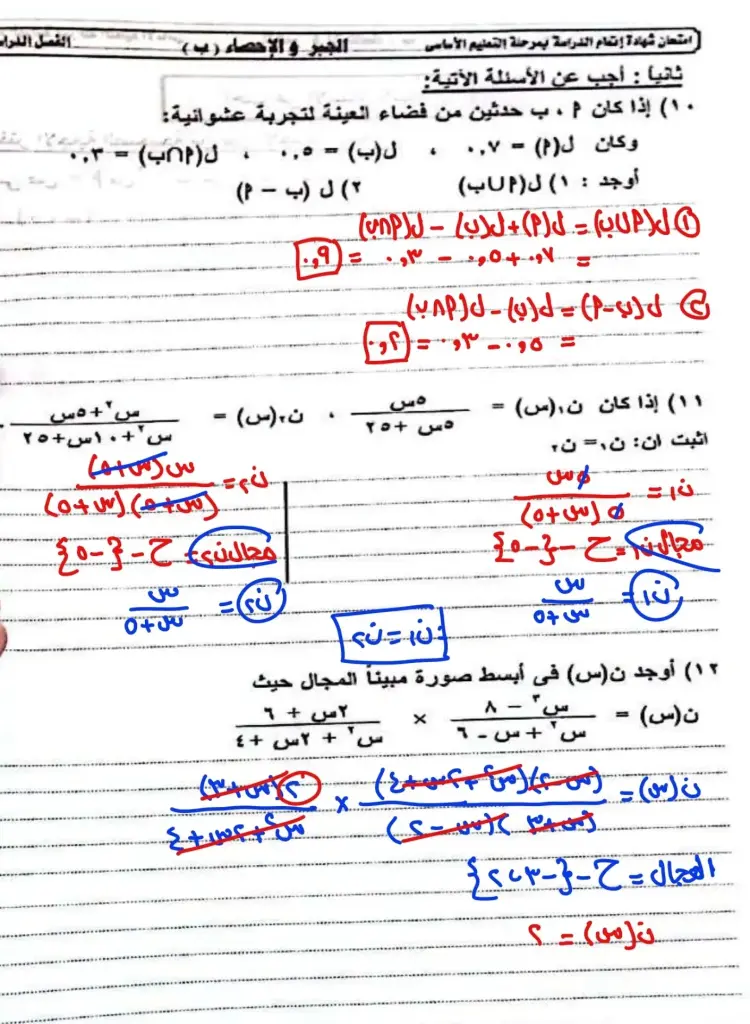 امتحان شهادة إتمام الدراسة بمرحلة التعليم الأساسى الجبر والإحصاء (ب) الفصل الدرا
ثانياً : أجب عن الأسئلة الآتية:
١٠) إذا كان م ، ب حدثين من فضاء العينة لتجربة عشوائية:
وكان ل(م) = ٠,٧ ، ل(ب) = ٠,٥ ، ل(م∩ب) = ٠,٣
أوجد : ١) ل(م∪ب) ٢) ل (ب – م)
① ل(م∪ب) = ل(م) + ل(ب) – ل(م∩ب)
= ٠,٧ + ٠,٥ – ٠,٣ = ٠,٩
② ل(ب-م) = ل(ب) – ل(م∩ب)
= ٠,٥ – ٠,٣ = ٠,٢
١١) إذا كان ن١(س) = ٥س / ٥س + ٢٥ ، ن٢(س) = س٢ + ٥س / س٢ + ١٠س + ٢٥
اثبت ان: ن١ = ن٢
ن١ = ٥س / ٥(س+٥)
مجال ن١ = ح – {-٥}
ن١ = س / س+٥
ن٢ = س(س+٥) / (س+٥)(س+٥)
مجال ن٢ = ح – {-٥}
ن٢ = س / س+٥
∴ ن١ = ن٢
١٢) أوجد ن(س) فى أبسط صورة مبيناً المجال حيث
ن(س) = س٣ – ٨ / س٢ + س – ٦ × ٢س + ٦ / س٢ + ٢س + ٤
ن(س) = (س-٢)(س٢+٢س+٤) / (س+٣)(س-٢) × ٢(س+٣) / س٢+٢س+٤
المجال = ح – {-٣، ٢}
ن(س) = ٢